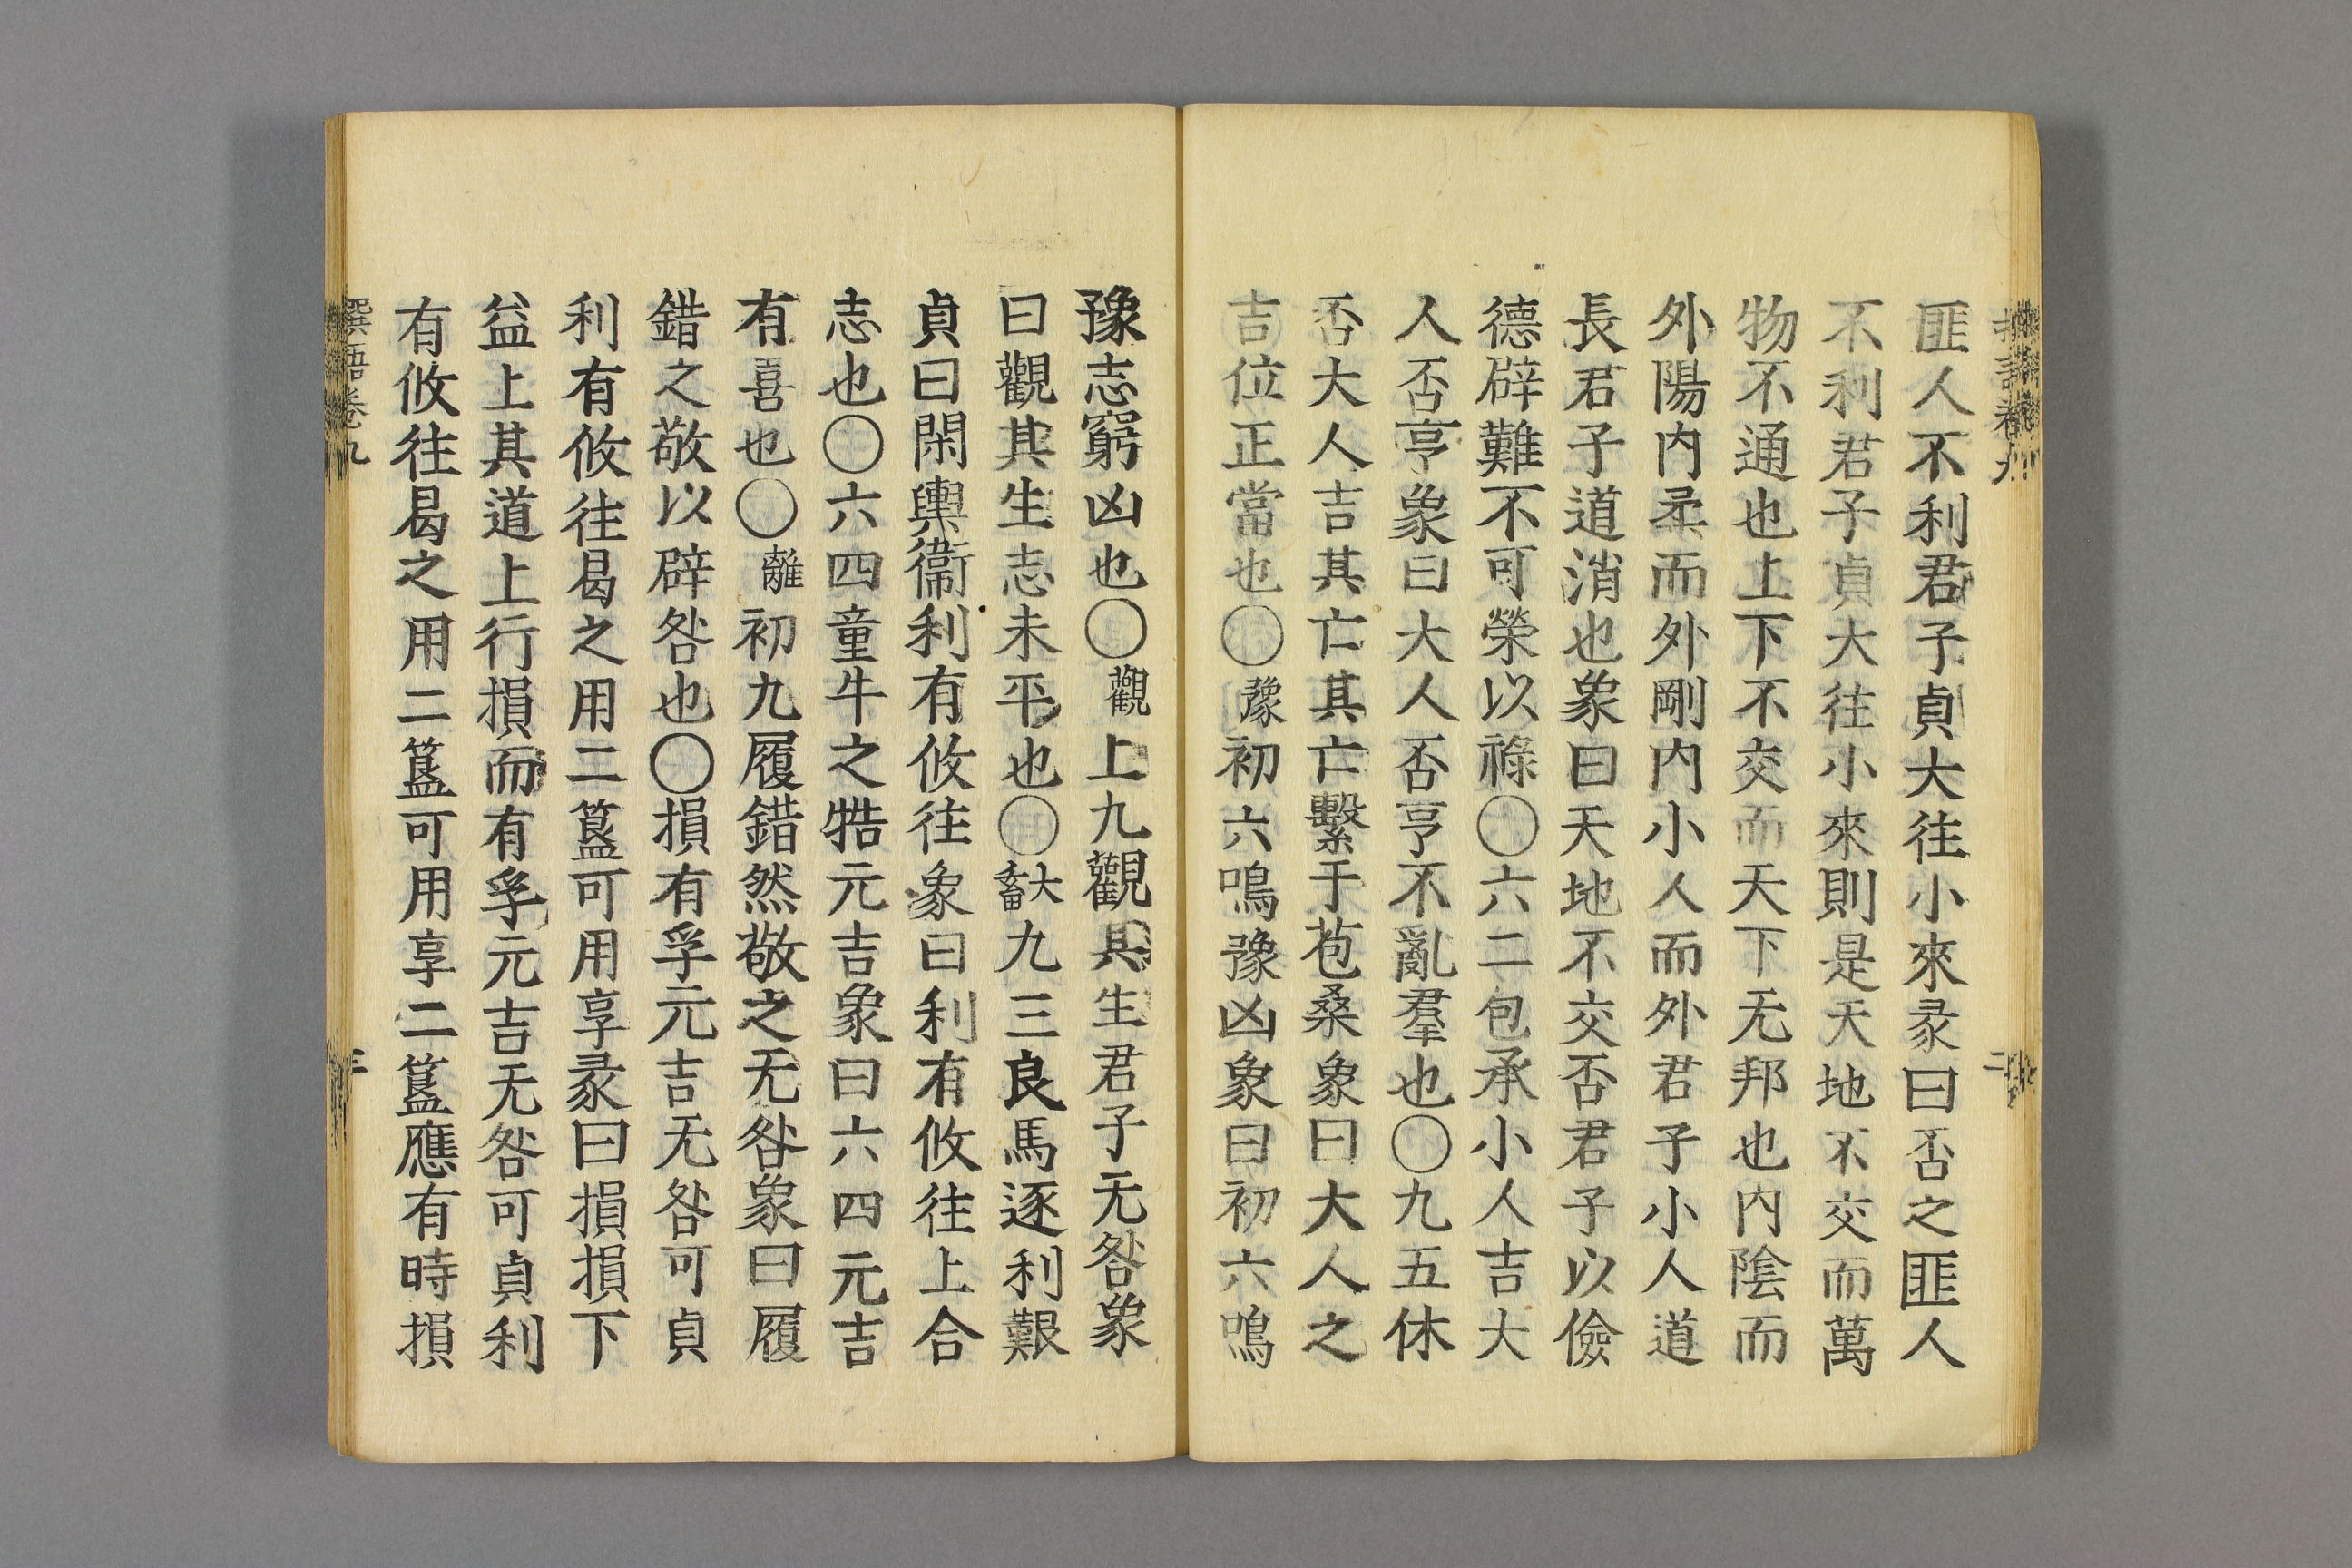 匪人不利君子貞大往小來彖曰否之匪人
不利君子貞大往小來則是天地不交而萬
物不通也上下不交而天下无邦也内陰而
外陽内柔而外剛内小人而外君子小人道
長君子道消也象曰天地不交否君子以儉
德辟難不可榮以祿〇六二包承小人吉大
人否亨象曰大人否亨不亂羣也〇九五休
否大人吉其亡其亡繫于苞桑象曰大人之
吉位正當也〇豫初六鳴豫凶象曰初六鳴
豫志窮凶也〇觀上九觀其生君子无咎象
曰觀其生志未平也〇大畜九三良馬逐利艱
貞曰閑輿衞利有攸往象曰利有攸往上合
志也〇六四童牛之牿元吉象曰六四元吉
有喜也〇離初九履錯然敬之无咎象曰履
錯之敬以辟咎也〇損有孚元吉无咎可貞
利有攸往曷之用二簋可用享彖曰損損下
益上其道上行損而有孚元吉无咎可貞利
有攸往曷之用二簋可用享二簋應有時損
選語卷九
三